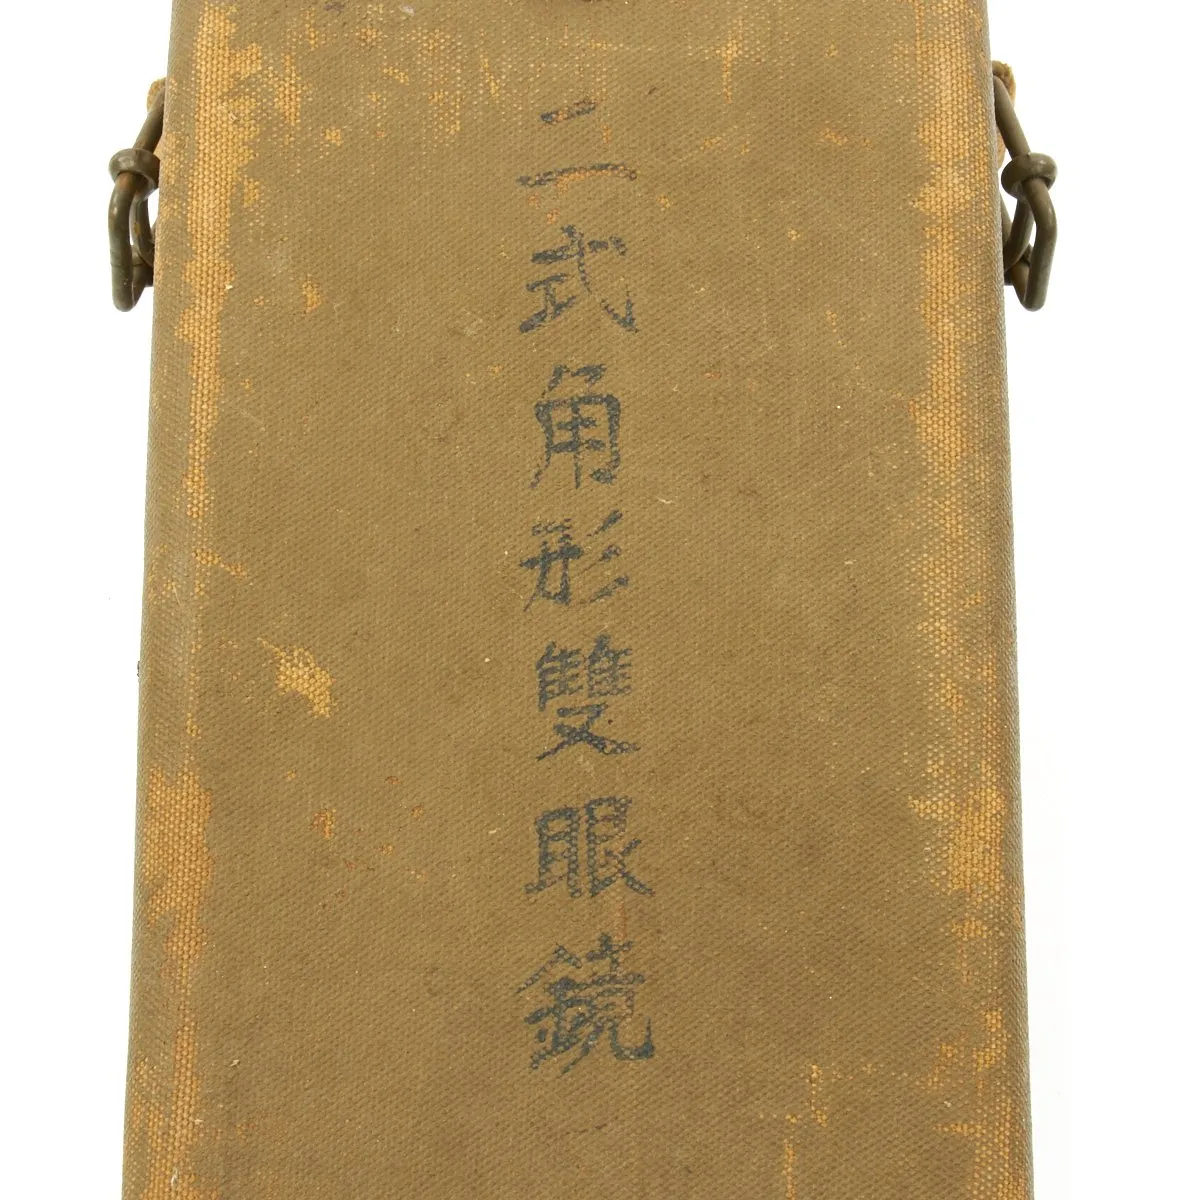 二式角形雙眼鏡